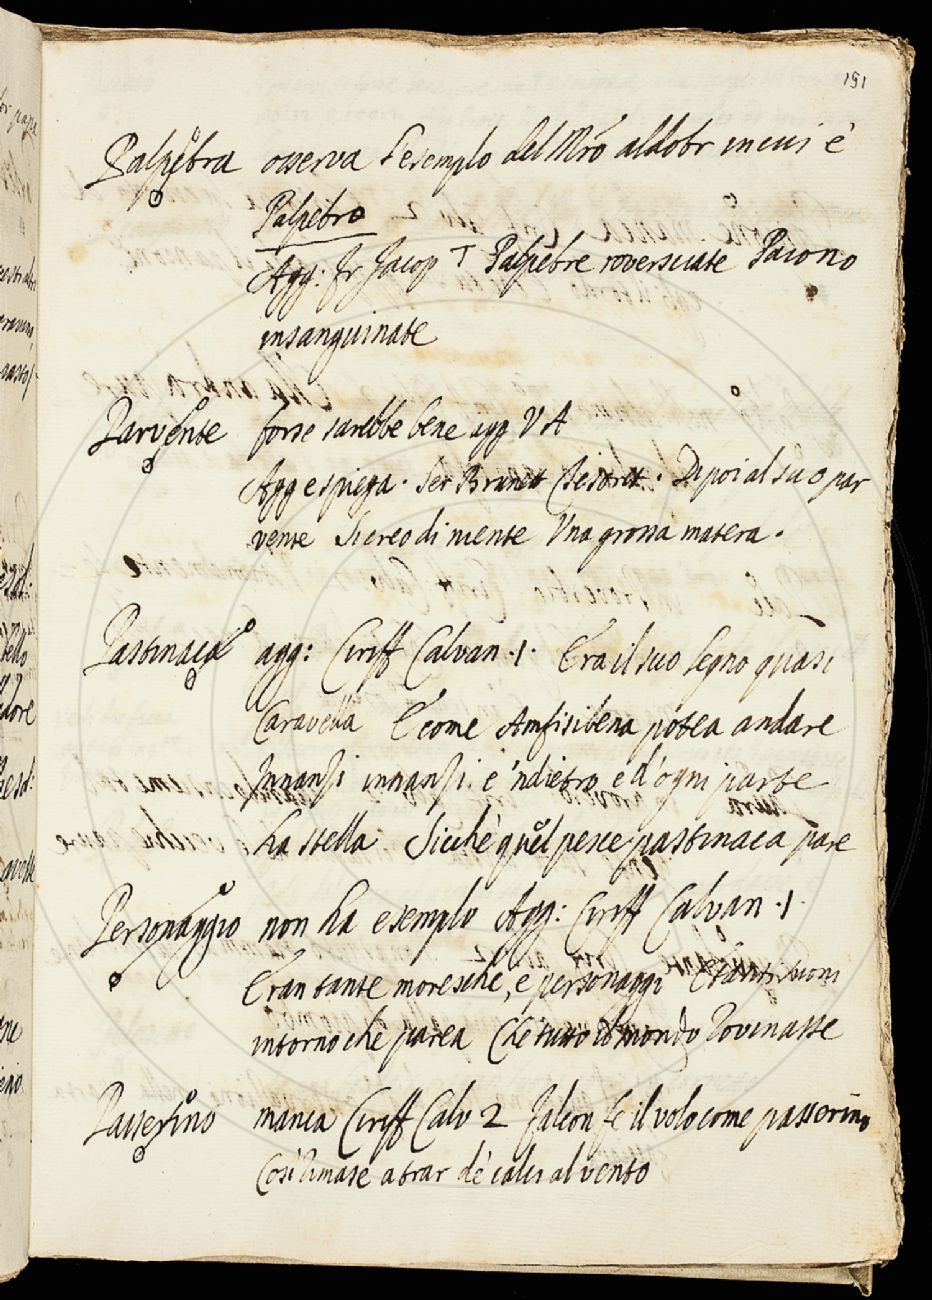 151
Palpebra osserva l'esemplo del Mro aldobr in cui è
Palpebro
Agg: fr Jacop T Palpebre roversciate Paiono
insanguinate
Parvente forse sarebbe bene agg V A
Agg e spiega. Ser Brunet Tesoret. Dipoi al suo par
vente Si creo di niente Una grossa matera.
Pastinaca agg: Ciriff Calvan. 1. Era il suo legno quasi
Caravella E come Amfisibena potea andare
Innanzi innanzi. e 'ndietro e d'ogni parte
ha stella Sicchè quel pesce pastinaca pare
Personaggio non ha esemplo Agg: Ciriff Calvan. 1.
Eran tante moresche, e personaggi E tanti suoni
intorno che parea Che tutto il mondo Rovinasse
Passerino manca Ciriff Calv 2 Falcon fe il volo come passerino
Così rimase a trar de calci al vento